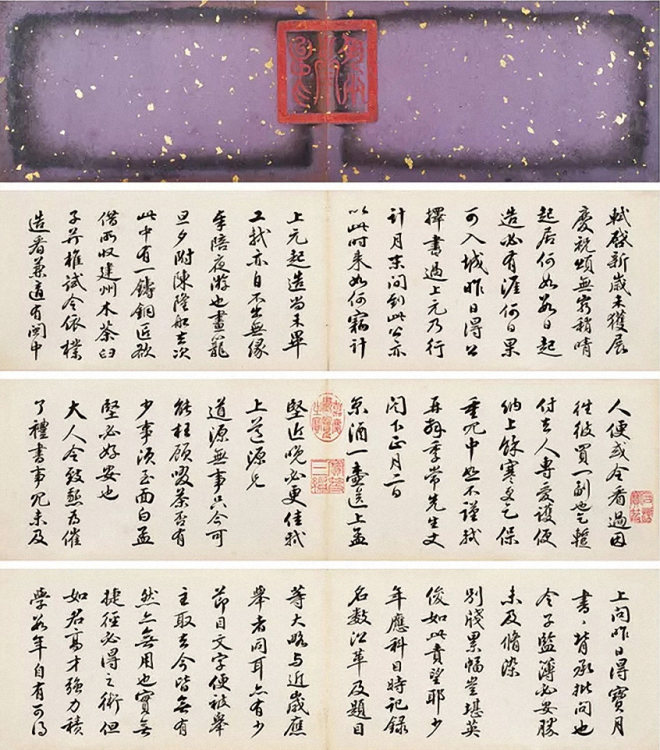 軾啟新歲未獲展
慶祝頌無窮稍晴
起居何如數日起
造必有涯何日果
可入城昨日得公
擇書過上元乃行
計月末間到此公亦
以此時來如何竊計
上元起造尚未畢
工軾亦自不出無緣
奉陪夜游也畫籠
旦夕附陳隆船去次
此中有一鑄銅匠欲
借所收建州木茶臼
子并椎試令依樣
造看兼適有閩中
人便或令看過因
往彼買一副也乞暫
付去人專愛護便
納上餘寒更乞保
重冗中恕不謹軾
再拜季常先生丈
閣下正月二日
京酒一壺送上孟
堅近晚必更佳軾
上道源兄
道源無事只今可
能枉顧啜茶否有
少事須至面白孟
堅必好安也
大人令致懇為催
了禮書事冗未及
上問昨日得寶月
書背承批問也
令子監簿必安勝
未及脩染
別牋累幅豈堪英
俊如此責望耶少
年應科目時記錄
名數沿革及題目
等大略與近歲應
舉者同耳亦有少
節目文字便被舉
主取去今皆無有
然亦無用也實無
捷徑必得之術但
如君高才強力積
學數年自有可得